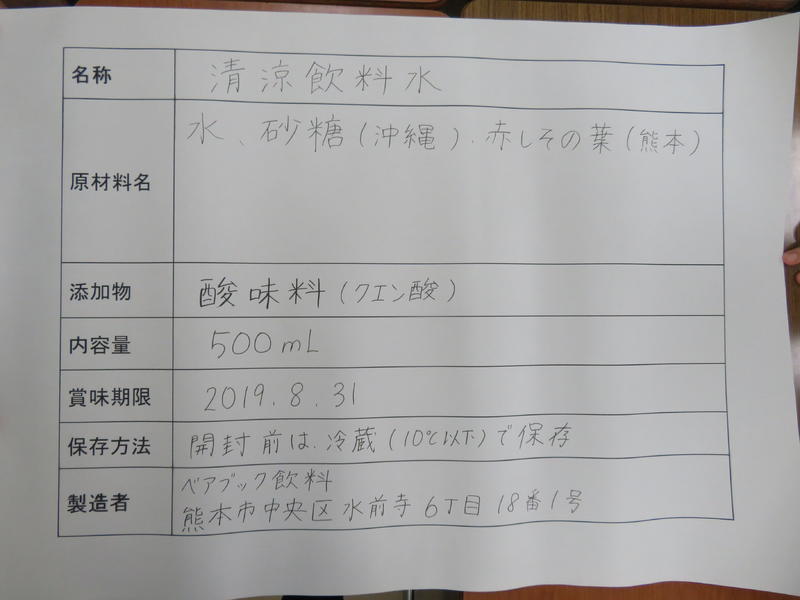 名称 清涼飲料水
原材料名 水、砂糖(沖縄)、赤しその葉(熊本)
添加物 酸味料(クエン酸)
内容量 500mL
賞味期限 2019.8.31
保存方法 開封前は、冷蔵(10℃以下)で保存
製造者 ベアブック飲料
熊本市中央区水前寺6丁目18番1号